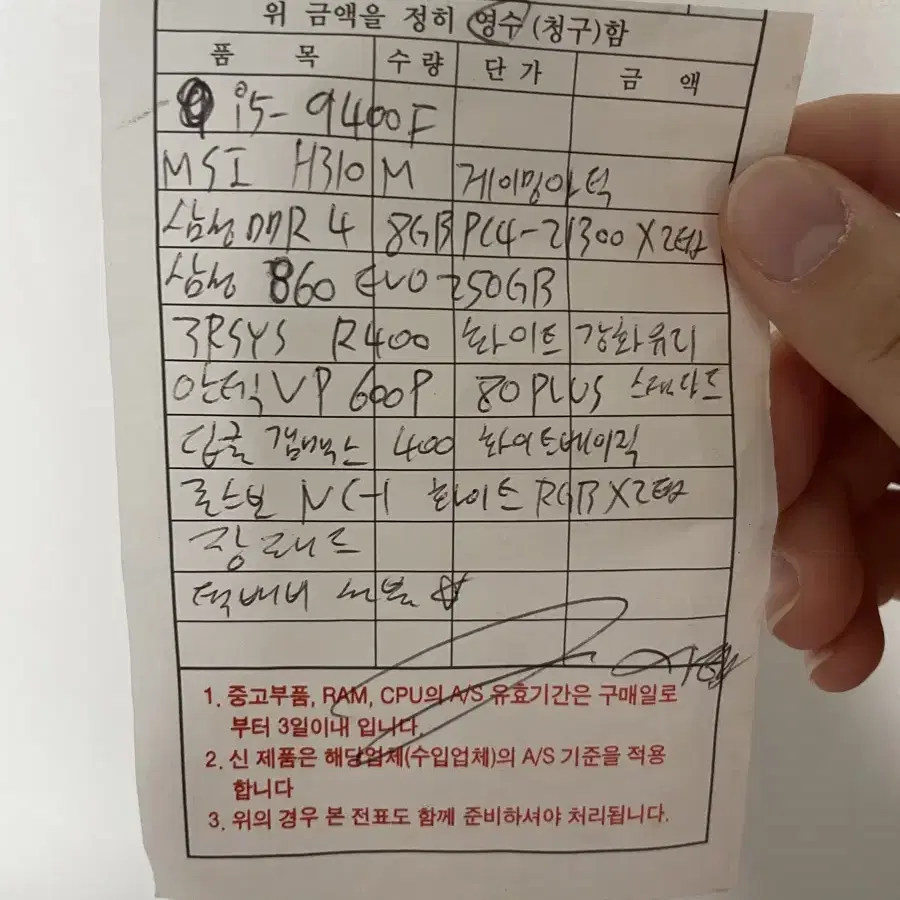 위 금액을 정히 영수 (청구)함
품 목 수 량 단 가 금 액
i5-9400F
MSI H310M 게이밍아틱
삼성 DDR4 8GB PC4-21300 X2
삼성 860 EVO 250GB
3RSYS R400 화이트 강화유리
안텍 VP 600P 80PLUS 스탠다드
딥쿨 갬맥스 400 화이트베이직
로스보 NC-1 화이트 RGB X2
장패드
택배비 선불
1. 중고부품, RAM, CPU의 A/S 유효기간은 구매일로
부터 3일이내 입니다.
2. 신 제품은 해당업체(수입업체)의 A/S 기준을 적용
합니다
3. 위의 경우 본 전표도 함께 준비하셔야 처리됩니다.